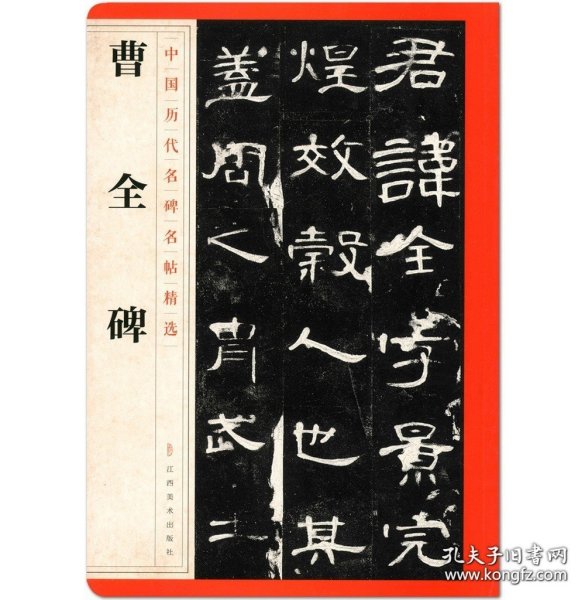 曹全碑
中国历代名碑名帖精选
江西美术出版社
君諱全字景完
煌效穀人也其
蓋周之冑武
孔夫子旧书网
www.kongfz.com